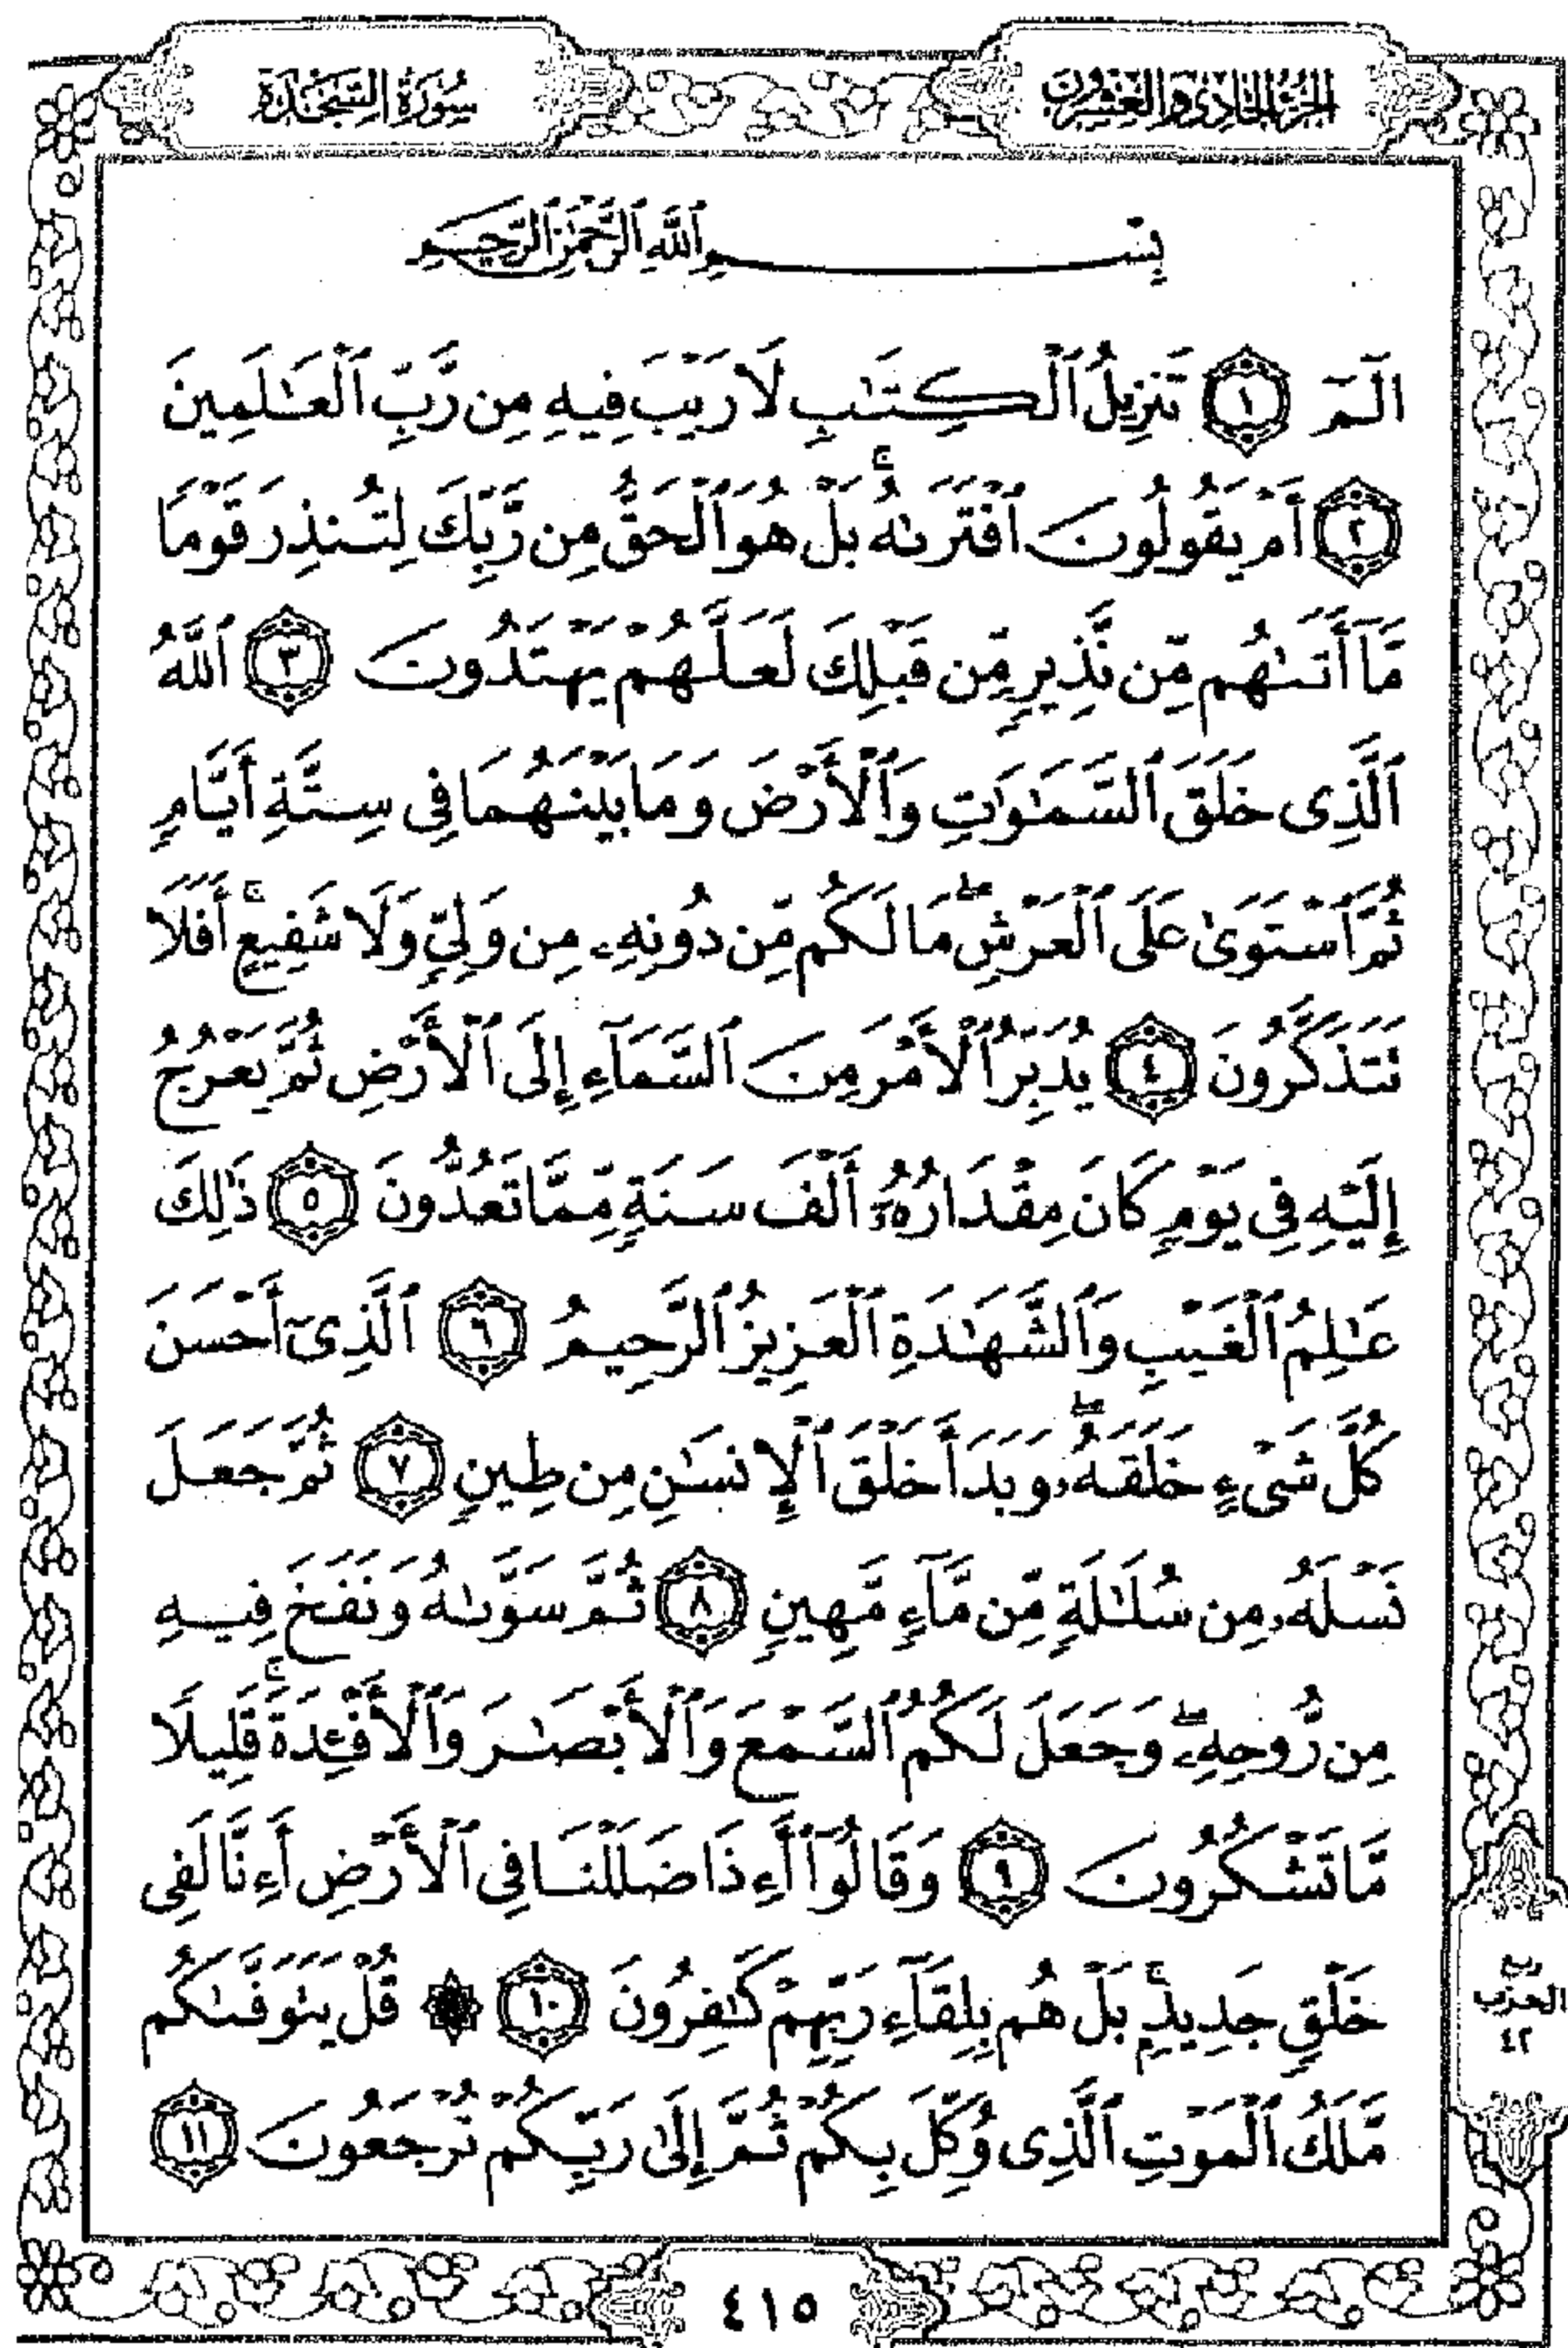 الجزء الحادي والعشرون
سورة السجدة
بِسْمِ ٱللَّهِ ٱلرَّحْمَٰنِ ٱلرَّحِيمِ
الٓمٓ ١ تَنزِيلُ ٱلْكِتَٰبِ لَا رَيْبَ فِيهِ مِن رَّبِّ ٱلْعَٰلَمِينَ
٢ أَمْ يَقُولُونَ ٱفْتَرَىٰهُ ۚ بَلْ هُوَ ٱلْحَقُّ مِن رَّبِّكَ لِتُنذِرَ قَوْمًا
مَّآ أَتَىٰهُم مِّن نَّذِيرٍ مِّن قَبْلِكَ لَعَلَّهُمْ يَهْتَدُونَ ٣ ٱللَّهُ
ٱلَّذِى خَلَقَ ٱلسَّمَٰوَٰتِ وَٱلْأَرْضَ وَمَا بَيْنَهُمَا فِى سِتَّةِ أَيَّامٍ
ثُمَّ ٱسْتَوَىٰ عَلَى ٱلْعَرْشِ ۖ مَا لَكُم مِّن دُونِهِۦ مِن وَلِىٍّ وَلَا شَفِيعٍ ۚ أَفَلَا
تَتَذَكَّرُونَ ٤ يُدَبِّرُ ٱلْأَمْرَ مِنَ ٱلسَّمَآءِ إِلَى ٱلْأَرْضِ ثُمَّ يَعْرُجُ
إِلَيْهِ فِى يَوْمٍ كَانَ مِقْدَارُهُۥٓ أَلْفَ سَنَةٍ مِّمَّا تَعُدُّونَ ٥ ذَٰلِكَ
عَٰلِمُ ٱلْغَيْبِ وَٱلشَّهَٰدَةِ ٱلْعَزِيزُ ٱلرَّحِيمُ ٦ ٱلَّذِىٓ أَحْسَنَ
كُلَّ شَىْءٍ خَلَقَهُۥ ۖ وَبَدَأَ خَلْقَ ٱلْإِنسَٰنِ مِن طِينٍ ٧ ثُمَّ جَعَلَ
نَسْلَهُۥ مِن سُلَٰلَةٍ مِّن مَّآءٍ مَّهِينٍ ٨ ثُمَّ سَوَّىٰهُ وَنَفَخَ فِيهِ
مِن رُّوحِهِۦ ۖ وَجَعَلَ لَكُمُ ٱلسَّمْعَ وَٱلْأَبْصَٰرَ وَٱلْأَفْـِٔدَةَ ۚ قَلِيلًا
مَّا تَشْكُرُونَ ٩ وَقَالُوٓا۟ أَءِذَا ضَلَلْنَا فِى ٱلْأَرْضِ أَءِنَّا لَفِى
خَلْقٍ جَدِيدٍۭ ۚ بَلْ هُم بِلِقَآءِ رَبِّهِمْ كَٰفِرُونَ ١٠ ۞ قُلْ يَتَوَفَّىٰكُم
مَّلَكُ ٱلْمَوْتِ ٱلَّذِى وُكِّلَ بِكُمْ ثُمَّ إِلَىٰ رَبِّكُمْ تُرْجَعُونَ ١١
ربع
الحزب
٤٢
٤١٥